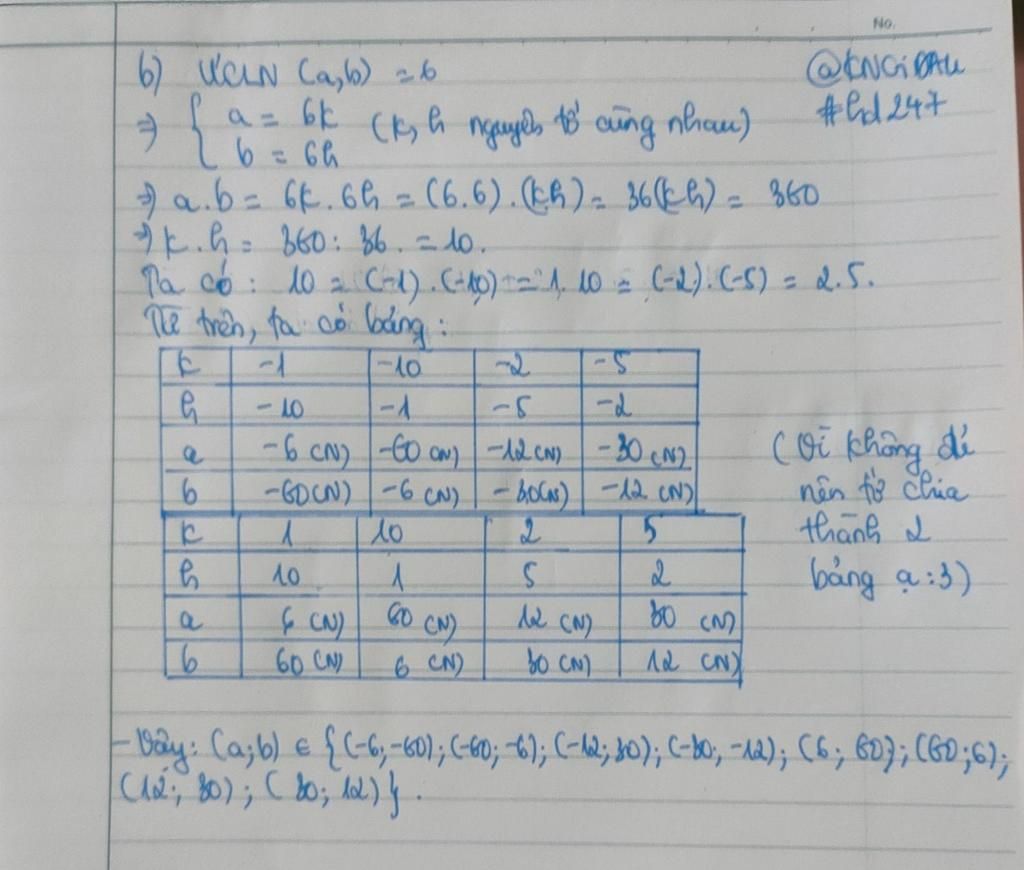 No.
b) ƯCLN (a,b) = 6
@KNGiBAU
#hd247
⇒ { a = 6k
b = 6h (k, h nguyên tố cùng nhau)
⇒ a.b = 6k.6h = (6.6).(k.h) = 36(k.h) = 360
⇒ k.h = 360 : 36 = 10.
Ta có : 10 = (-1).(-10) = 1.10 = (-2).(-5) = 2.5.
Từ trên, ta có bảng :
k -1 -10 -2 -5
h -10 -1 -5 -2
a -6 (N) -60 (N) -12 (N) -30 (N)
b -60 (N) -6 (N) -30 (N) -12 (N)
(Vì không đủ
nên tớ chia
thành 2
bảng ạ :3)
k 1 10 2 5
h 10 1 5 2
a 6 (N) 60 (N) 12 (N) 30 (N)
b 60 (N) 6 (N) 30 (N) 12 (N)
- Vậy: (a;b) ∈ {(-6;-60);(-60;-6);(-12;30);(-30,-12); (6; 60};(60;6);
(12; 30) ; (30; 12)}.